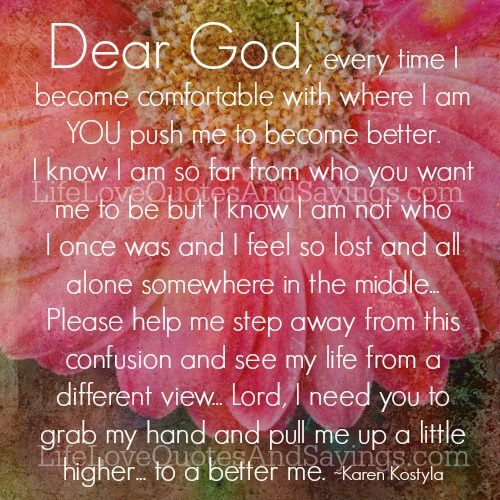 Dear God, every time I
become comfortable with where I am
YOU push me to become better.
I know I am so far from who you want
LifeLoveQuotesAndSayings.com
me to be but I know I am not who
I once was and I feel so lost and all
alone somewhere in the middle...
Please help me step away from this
confusion and see my life from a
different view... Lord, I need you to
grab my hand and pull me up a little
LifeLoveQuotesAndSayings.com
higher... to a better me. ~Karen Kostyla